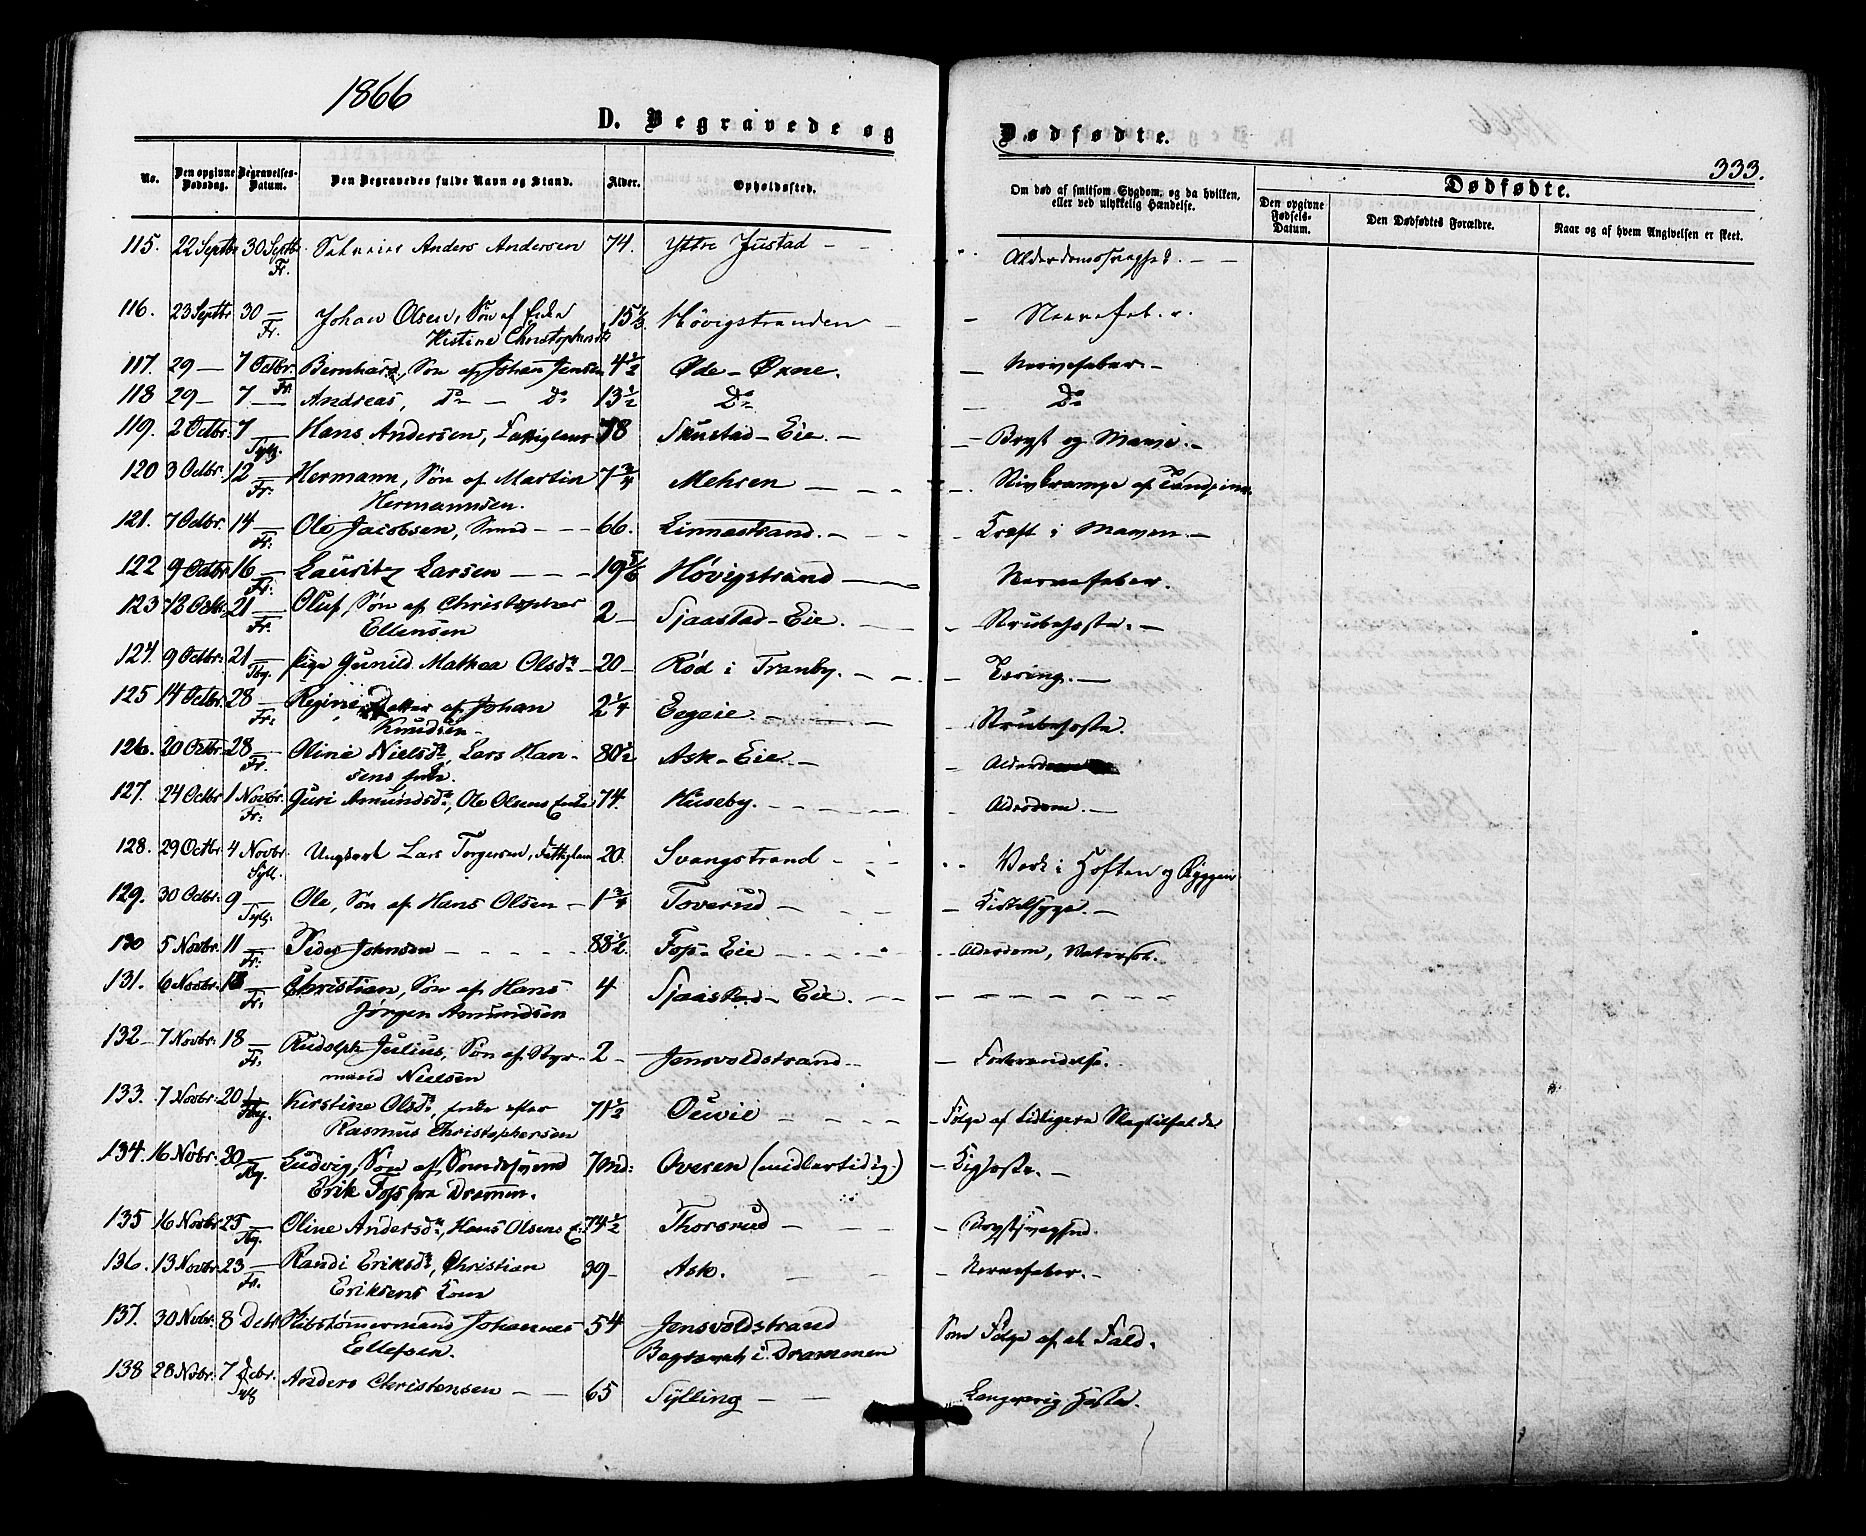 1866
D. Begravede og
Dødfødte.
333.
No.
Den opgivne Dødsdag.
Begravelses-Datum.
Den Begravedes fulde Navn og Stand.
Alder.
Opholdssted.
Om død af smitsom Sygdom, og da hvilken,
eller ved ulykkelig Hændelse.
Dødfødte.
Den opgivne Fødsels-Datum.
Den Dødfødtes Forældre.
Naar og af hvem Angivelsen er skeet.
115. 22 Septbr 30 Septbr Anders Andersen 74. Yttre Justad
Fr.
116. 23 Septbr 30 — Johan Olsen, Søn af Enke 15 1/3 Høvigstranden
Fr. Christophersd.
117. 29 — 7 Octbr. Bernhard, Søn af Johan Jensen 4 1/2 Øde-Øxne. Nervefeber. —
Fr.
118 29 — 7 — Andreas, Do — Do 13 1/2 Do Do
119. 2 Octbr. 7 — Hans Andersen, Fattiglem 78 Skustad-Eie — Bryst og Mave. —
Syll.
120 3 Octbr. 12 — Hermann, Søn af Martin 7 3/4 Mehren
Fr. Hermannsen.
121. 7 Octbr. 14 — Ole Jacobsen, Smed — 66. Linnestrand. Kræft i Maven. —
Fr.
122 9 Octbr 16 — Lauritz Larsen — 19 5/6 Høvigstrand Nervefeber.
Fr.
123 12 Octbr. 21 — Oluf, Søn af Christopher 2 — Sjaastad-Eie. Strubehoste. —
Fr. Ellensen
124. 9 Octbr. 21 — Pige Gunild Mathea Olsdr. 20 — Rød i Tranby. Tæring. —
Tbg.
125 14 Octbr. 28 — Regine, Datter af Johan 2 1/4 Eegeie. Strubehoste.
Fr. Knudsen —
126. 20 Octbr. 28 — Oline Nielsdr., Lars Han- 80 1/2 Ask-Eie. — Alderdom
Fr. sens Enke.
127. 24 Octbr 1 Novbr. Guri Amundsdr., Ole Olsens Enke 74. Huseby. Alderdom. —
Fr.
128. 29 Octbr. 4 Novbr. Ungkarl Lars Torgersen, Fattiglem 20. Svangstrand Værk i Hoften og Ryggen
Syll.
129. 30 Octbr. 9 — Ole, Søn af Hans Olsen — 1 3/4 Toverud — Kirtelsyge. —
Syll.
130 5 Novbr. 11 — Peder Johnsen — 88 1/2 Foss-Eie Alderdom, Vatersot.
Fr.
131. 6 Novbr. 18 — Christian, Søn af Hans 4 Sjaastad-Eie.
Fr. Jørgen Amundsen
132 — 7 Novbr. 18 — Rudolph Julius, Søn af Styr- 2 — Jensvoldstrand — Forbrændelse.
Fr. mand Nielsen
133. 7 Novbr. 20 — Kirstine Olsdr., Enke efter 71 1/2 Ouvie — Følge af tidligere Slagtilfælde
Tbg. Rasmus Christophersen
134. 16 Novbr. 20 — Ludvig, Søn af 7 Md: Overen (midlertidig.) Kighoste. —
Tbg. Erik Foss fra Drammen.
135 16 Novbr. 25 — Oline Andersdr., Hans Olsens E. 74 1/2 Thorsrud — Brystsvaghed.
Tbg.
136. 13 Novbr. 23 — Randi Eriksdr., Christian 39 — Ask. Nervefeber. —
Fr. Eriksens Kone
137. 30 Novbr. 8 Debr Skibstømmermand Johannes 54 Jensvoldstrand Som Følge af et Fald.
Ellefsen. i Drammen
138 28 Novbr. 7 Debr. Anders Christensen — 65 Sylling — Langvarig Hoste.
Syll